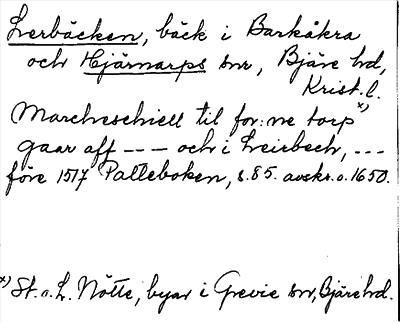 Lerbäcken, bäck i Barkåkra
och Hjärnarps snr, Bjäre hd,
Krist. l.
Marcheschiell til for:ne torp x)
gaar aff - - - och i Leirbech, - - -
före 1517 Palteboken, s. 85. avskr. o. 1650.
x) St. o. L. Nötte, byar i Grevie sn, Bjäre hd.